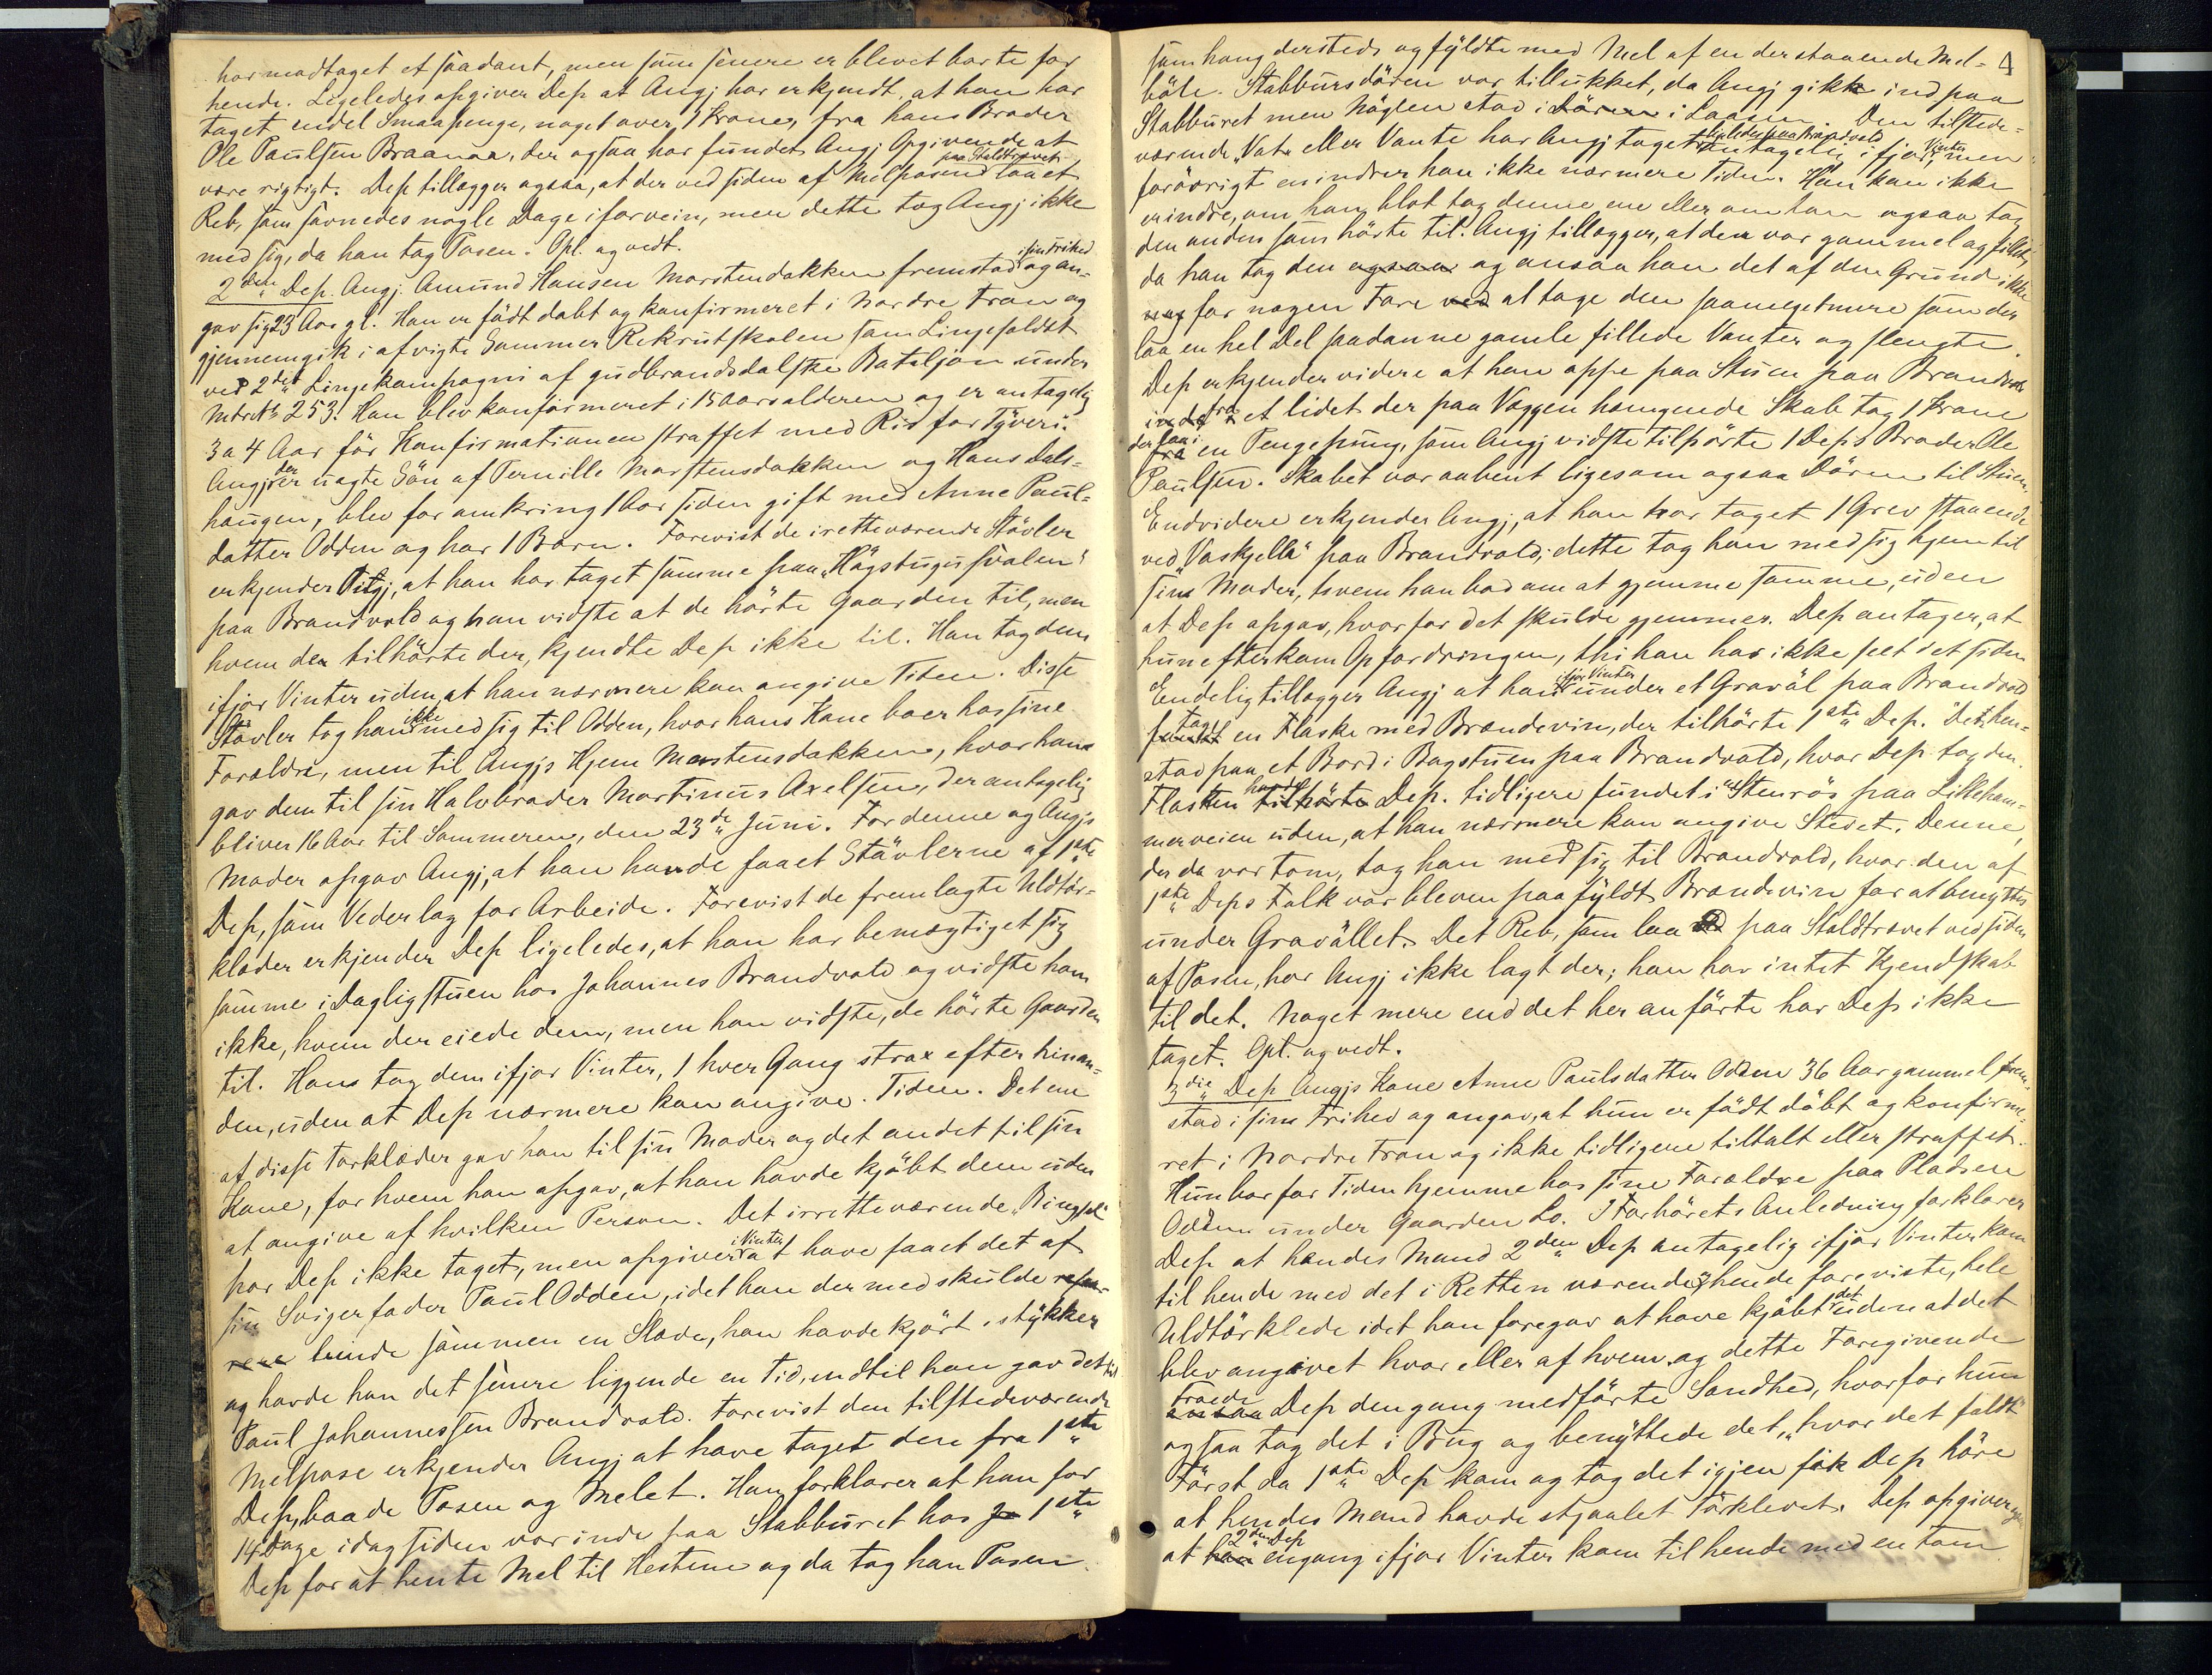 har modtaget et saadant, men som senere er blevet borte for
hende. Ligeledes opgiver Dep at Angj har erkjendt, at han har
taget endel Smaapenge, noget over 1 Krone, fra hans Broder
Ole Paulsen Braanaa, der ogsaa har fundet Angj Opgivende at
være rigtigt. Dep tillægger ogsaa, at der ved siden af Melposen paa Staldtrævet laa et
Reb, som savnedes nogle Dage iforvein, men dette tog Angj ikke
med sig, da han tog Posen. Opl. og vedt.
2den Dep. Angj. Amund Hansen Morstendokken fremstod i sin frihed og an-
gav sig 23 Aar gl. Han er födt dabt og konfirmeret i Nordre Fron og
gjennemgik i afvigte Sommer Rekrutskolen som Linjesoldat
ved 2det Linjekompagni af gudbrandsdalske Bataljon under
Mtrt No 253. Han blev konfirmeret i 15 aarsalderen og er antagelig
3 a 4 Aar för Konfirmationen straffet med Ris for Tyveri.
Angj der er uægte Sön af Pernille Morstensdokken og Hans Dals-
haugen, blev for omkring 1 Aar siden gift med Anne Pauls-
datter Odden og har 1 Barn. Forevist de iretteværende Stövler
erkjender Angj, at han har taget samme paa "Högstugusvalen"
paa Brandvold og han vidste at de hörte Gaarden til, men
hvem de tilhörte der, kjendte Dep ikke til. Han tog dem
ifjor Vinter uden at han nærmere kan angive Tiden. Disse
Stövler tog han ikke med sig til Odden, hvor hans Kone boer hos sine
Forældre, men til Angjs Hjem Morstensdokken, hvor han
gav dem til sin Halvbroder Martinus Axelsen, der antagelig
bliver 16 Aar til Sommeren, den 23de Juni. For denne og Angjs
Moder opgav Angj, at han havde faaet Stövlerne af 1ste
Dep, som Vederlag for Arbeide. Forevist de fremlagte Uldtör-
klæder erkjender Dep ligeledes, at han har bemægtiget sig
samme i Dagligstuen hos Johannes Brandvold og vidste han
ikke, hvem der eiede dem, men han vidste, de hörte Gaarden
til. Han tog dem ifjor Vinter, 1 hver Gang strax efter hinan-
den, uden at Dep nærmere kan angive Tiden. Det ene
af disse Törklæder gav han til sin Moder og det andet til sin
Kone, for hvem han opgav, at han havde kjöbt dem uden
at angive af hvilken Person. Det irretteværende "Ringsel"
har Dep ikke taget, men opgiver i Vinter at have faaet det af
sin Svigerfader Paul Odden, idet han dermed skulde repa-
rere binde sammen en Slæde, han havde kjört istykker
og havde han det senere liggende en Tid, indtil han gav det til
Paul Johannessen Brandvold. Forevist den tilstedeværende
Melpose erkjender Angj at have taget den fra 1ste
Dep, baade Posen og Melet. Han forklarer at han for
14 Dage idag siden var inde paa Stabburet hos Jo 1ste
Dep for at hente Mel til Hestene og da tog han Posen
4
som hang dersteds og fyldte med Mel af en der staaende Mel-
böle. Stabbursdören var tillukket, da Angj gik ind paa
Stabburet men Nöglen stod i Dören i Laasen. Den tilstede-
værende "Vat" eller Vante har Angj taget ligeledes paa Brandvold antagelig ifjor Vinter, men
forövrigt erindrer han ikke nærmere Tiden. Han kan ikke
erindre, om han blot tog denne ene eller om han ogsaa tog
den anden som hörte til. Angj tillægger, at den var gammel og fillet
da han tog den ogsaa og ansaa han det af den Grund ikke
nog for nogen Fare ved at tage den saameget mere som der
laa en hel Del saadanne gamle fillede Vanter og slengte.
Dep erkjender videre at han oppe paa Stuen paa Brandvold
inde fra et lidet der paa Væggen hængende Skab tog 1 Krone
der laa i fra en Pengepung, som Angj vidste tilhörte 1 Deps Broder Ole
Paulsen. Skabet var aabent ligesom ogsaa Dören til Stuen.
Endvidere erkjender Angj, at han har taget 1 Grev staaende
ved "Vaskjella" paa Brandvold; dette tog han med sig hjem til
sin Moder, hvem han bad om at gjemme samme, uden
at Dep opgav, hvorfor det skulde gjemmes. Dep antager, at
hun efterkom Opfordringen, thi han har ikke seet det siden.
Endelig tillægger Angj at han ifjor Vinter under et Gravöl paa Brandvold
tog en Flaske med Brændevin, der tilhörte 1ste Dep. Det hen-
stod paa et Bord i Bagstuen paa Brandvold, hvor Dep tog den.
Flasken havde tilhörte Dep. tidligere fundet i en Stenrös paa Lilleham-
merveien uden, at han nærmere kan angive Stedet. Denne,
der da var tom, tog han med sig til Brandvold, hvor den af
1ste Deps Folk var bleven paafyldt Brændevin for at benyttes
under Gravöllet. Det Reb, som laa paa Staldtrævet ved siden
af Posen, har Angj ikke lagt der; han har intet Kjendskab
til det. Noget mere end det her anförte har Dep ikke
taget. Opl. og vedt.
3die Dep Angjs Kone Anne Paulsdatter Odden 36 Aar gammel frem-
stod i sin Frihed og angav, at hun er födt döbt og konfirme-
ret i Nordre Fron og ikke tidligere tiltalt eller straffet.
Hun bor for Tiden hjemme hos sine Forældre paa Pladsen
Odden under Gaarden Lo. I Forhörets Anledning forklarer
Dep at hendes Mand 2den Dep antagelig ifjor Vinter kom
til hende med det i Retten værende, hende foreviste, hele
Uldtörklede idet han foregav at have kjöbt det uden at det
blev angivet hvor eller af hvem, og dette Foregivende
troede ansaa Dep dengang medförte Sandhed, hvorfor hun
ogsaa tog det i Brug og benyttede det, "hvor det faldt"
Först da 1ste Dep kom og tog det igjen fik Dep höre
at hendes Mand havde stjaalet Törkledet. Dep opgiver
at han 2den Dep engang ifjor Vinter kom til hende med en tom